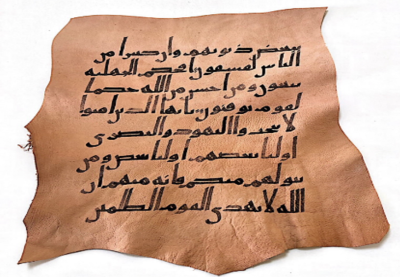 ببعض ذنوبهم وان كثيرا من
الناس لفسقون افحكم الجهليه
يبغون ومن احسن من الله حكما
لقوم يوقنون يايها الذين امنوا
لا تتخذوا اليهود والنصرى
اوليا بعضهم اوليا بعض ومن
يتولهم منكم فانه منهم ان
الله لا يهدى القوم الظلمين